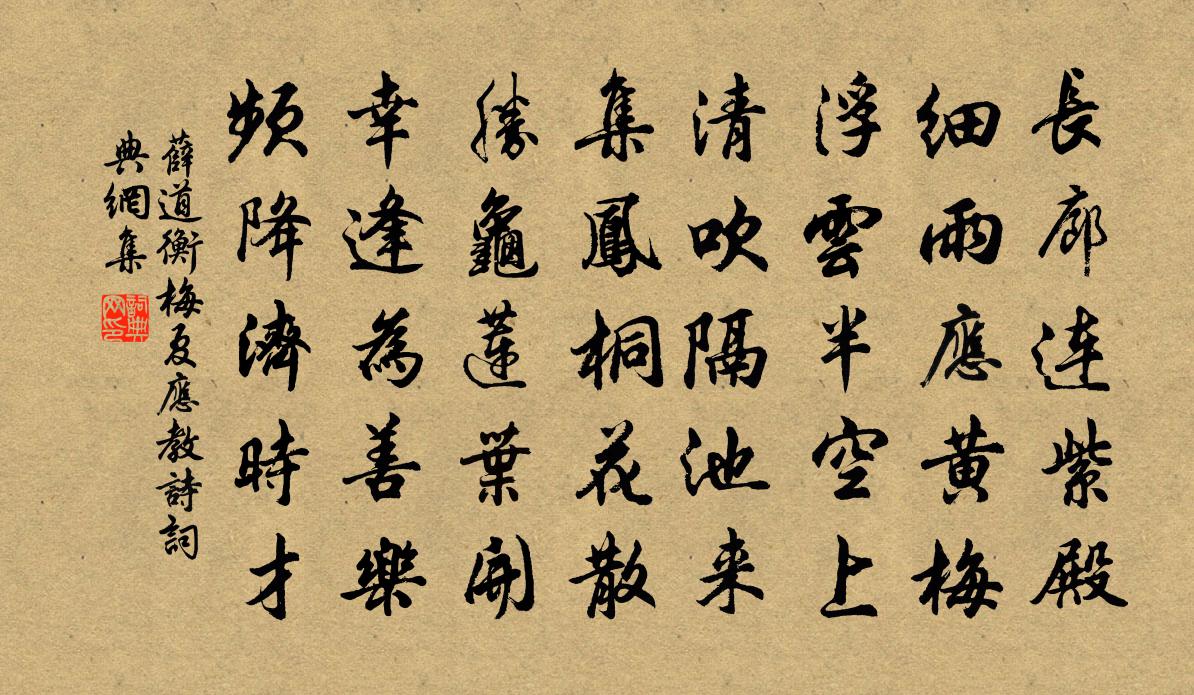 長廊連紫殿
細雨應黄梅
浮雲半空上
清吹隔池来
集鳳桐花散
勝龜蓮葉開
幸逢為善樂
頻降濟時才
薛道衡梅夏應教詩詞
典網集
詞典网印